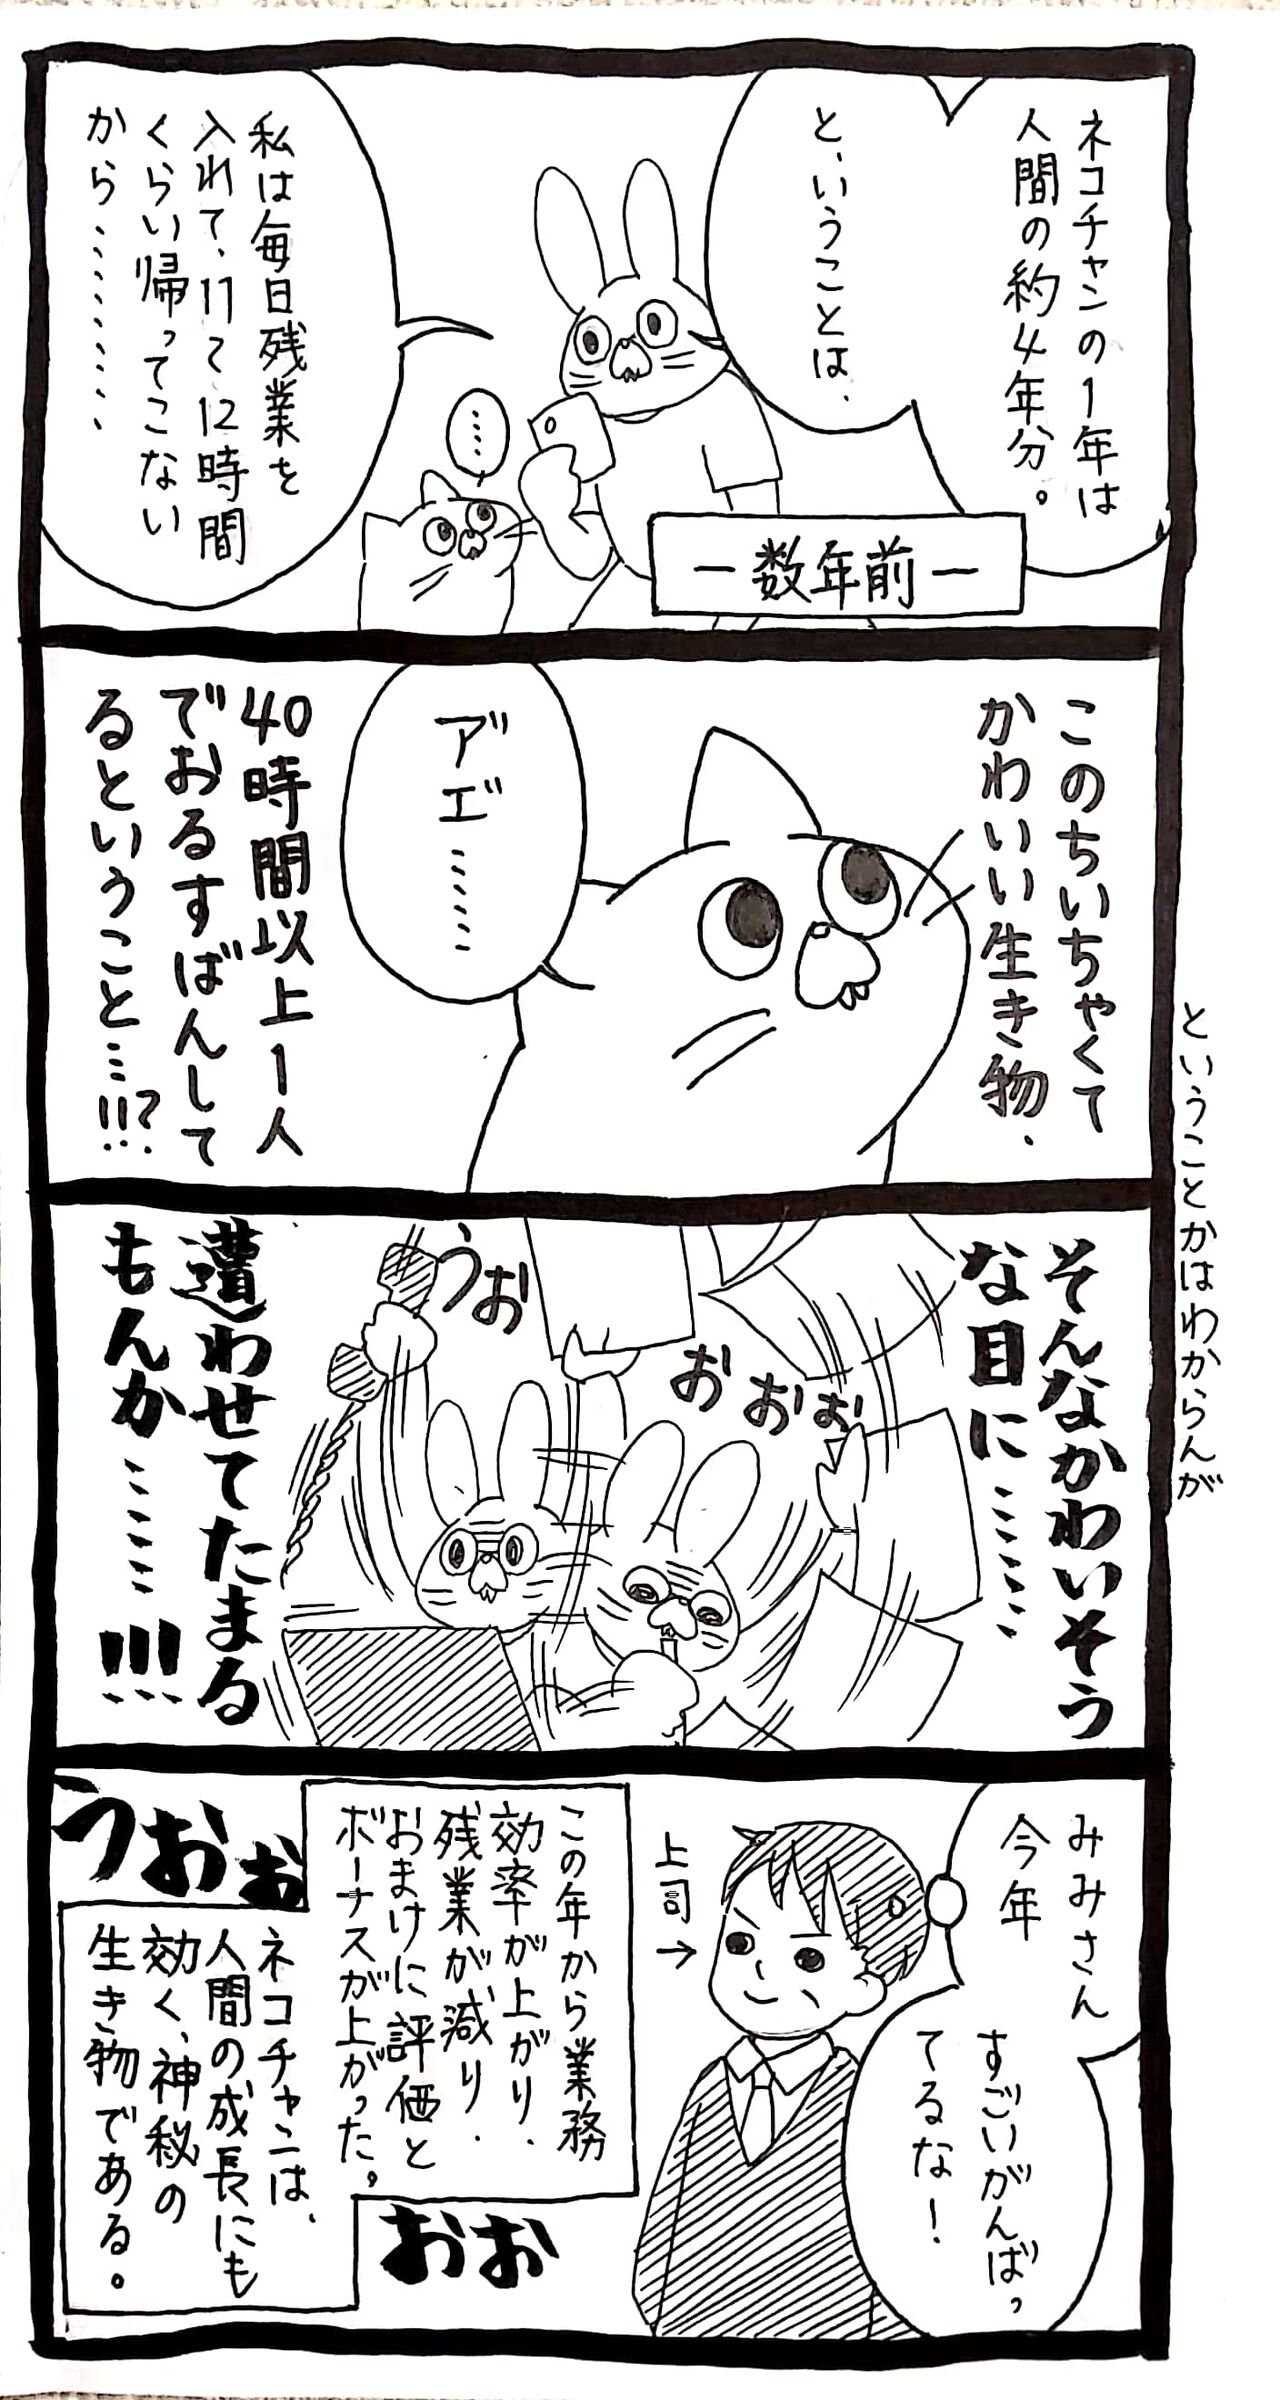 ネコチャンの1年は
人間の約4年分。
と、いうことは、
ー数年前ー
……
私は毎日残業を
入れて、11〜12時間
くらい帰ってこない
から………
このちいちゃくて
かわいい生き物、
アエ……
40時間以上1人
でおるすばんして
るということ…!!?
ということかはわからんが
そんなかわいそう
な目に……
うお
おおお
遭わせてたまる
もんか……!!!
みみさん
今年
すごいがんばっ
てるな！
上司→
この年から業務
効率が上がり、
残業が減り、
おまけに評価と
ボーナスが上がった。
うおお
おお
ネコチャンは、
人間の成長にも
効く、神秘の
生き物である。